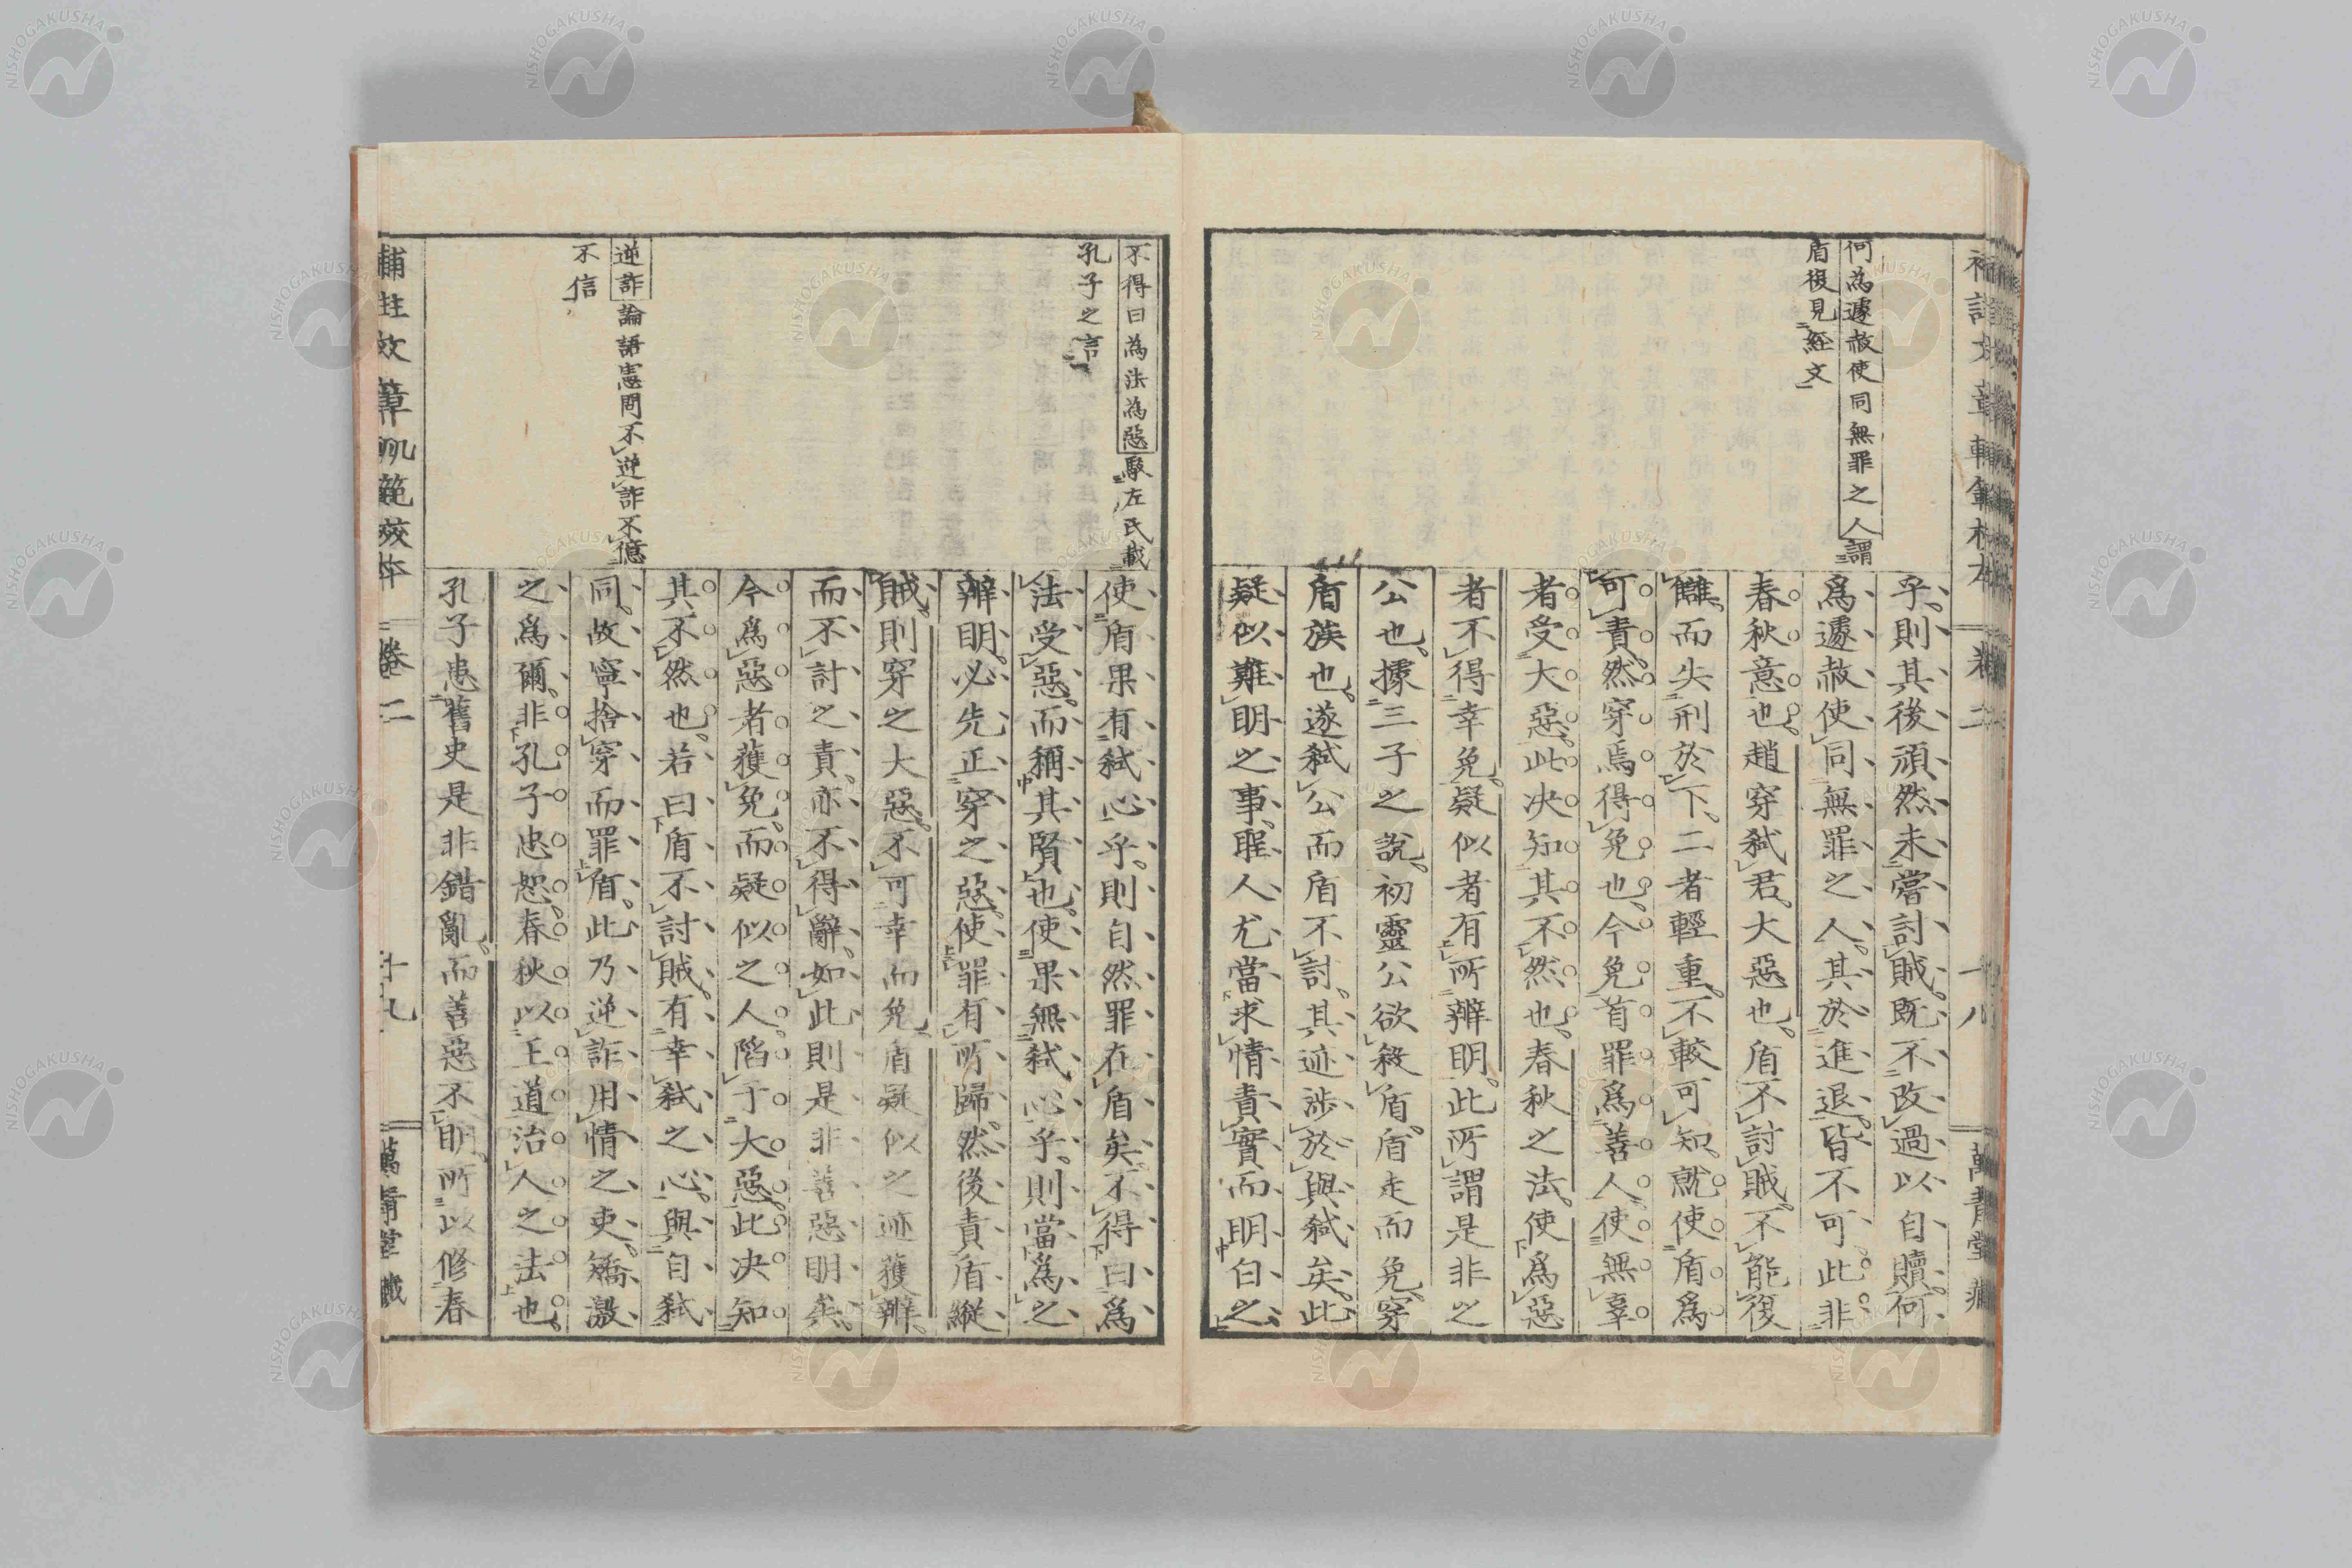 補註文章軌範校本
卷二
十八
萬青堂藏
何為遽赦使同無罪之人謂
盾復見經文
乎則其後頑然未嘗討賊既不改過以自贖何
爲遽赦使同無罪之人其於進退皆不可此非
春秋意也趙穿弑君大惡也盾不討賊不能復
讎而失刑於下二者輕重不較可知就使盾爲
可責然穿焉得免也今免首罪爲善人使無辜
者受大惡此决知其不然也春秋之法使爲惡
者不得幸免疑似者有所辨明此所謂是非之
公也據三子之說初靈公欲殺盾盾走而免穿
盾族也遂弑公而盾不討其迹涉於與弑矣此
疑似難明之事聖人尤當求情責實而明白之
不得曰為法為惡駁左氏載
孔子之言
逆詐論語憲問不逆詐不億
不信
使盾果有弑心乎則自然罪在盾矣不得曰爲
法受惡而稱其賢也使果無弑心乎則當爲之
辨明必先正穿之惡使罪有所歸然後責盾縱
賊則穿之大惡不可幸而免盾疑似之迹獲辨
而不討之責亦不得辭如此則是非善惡明矣
今爲惡者獲免而疑似之人陷于大惡此决知
其不然也若曰盾不討賊有幸弑之心與自弑
同故寧捨穿而罪盾此乃逆詐用情之吏矯激
之爲爾非孔子忠恕春秋以王道治人之法也
孔子患舊史是非錯亂而善惡不明所以修春
補註文章軌範校本
卷二
十九
萬青堂藏
NISHOGAKUSHA